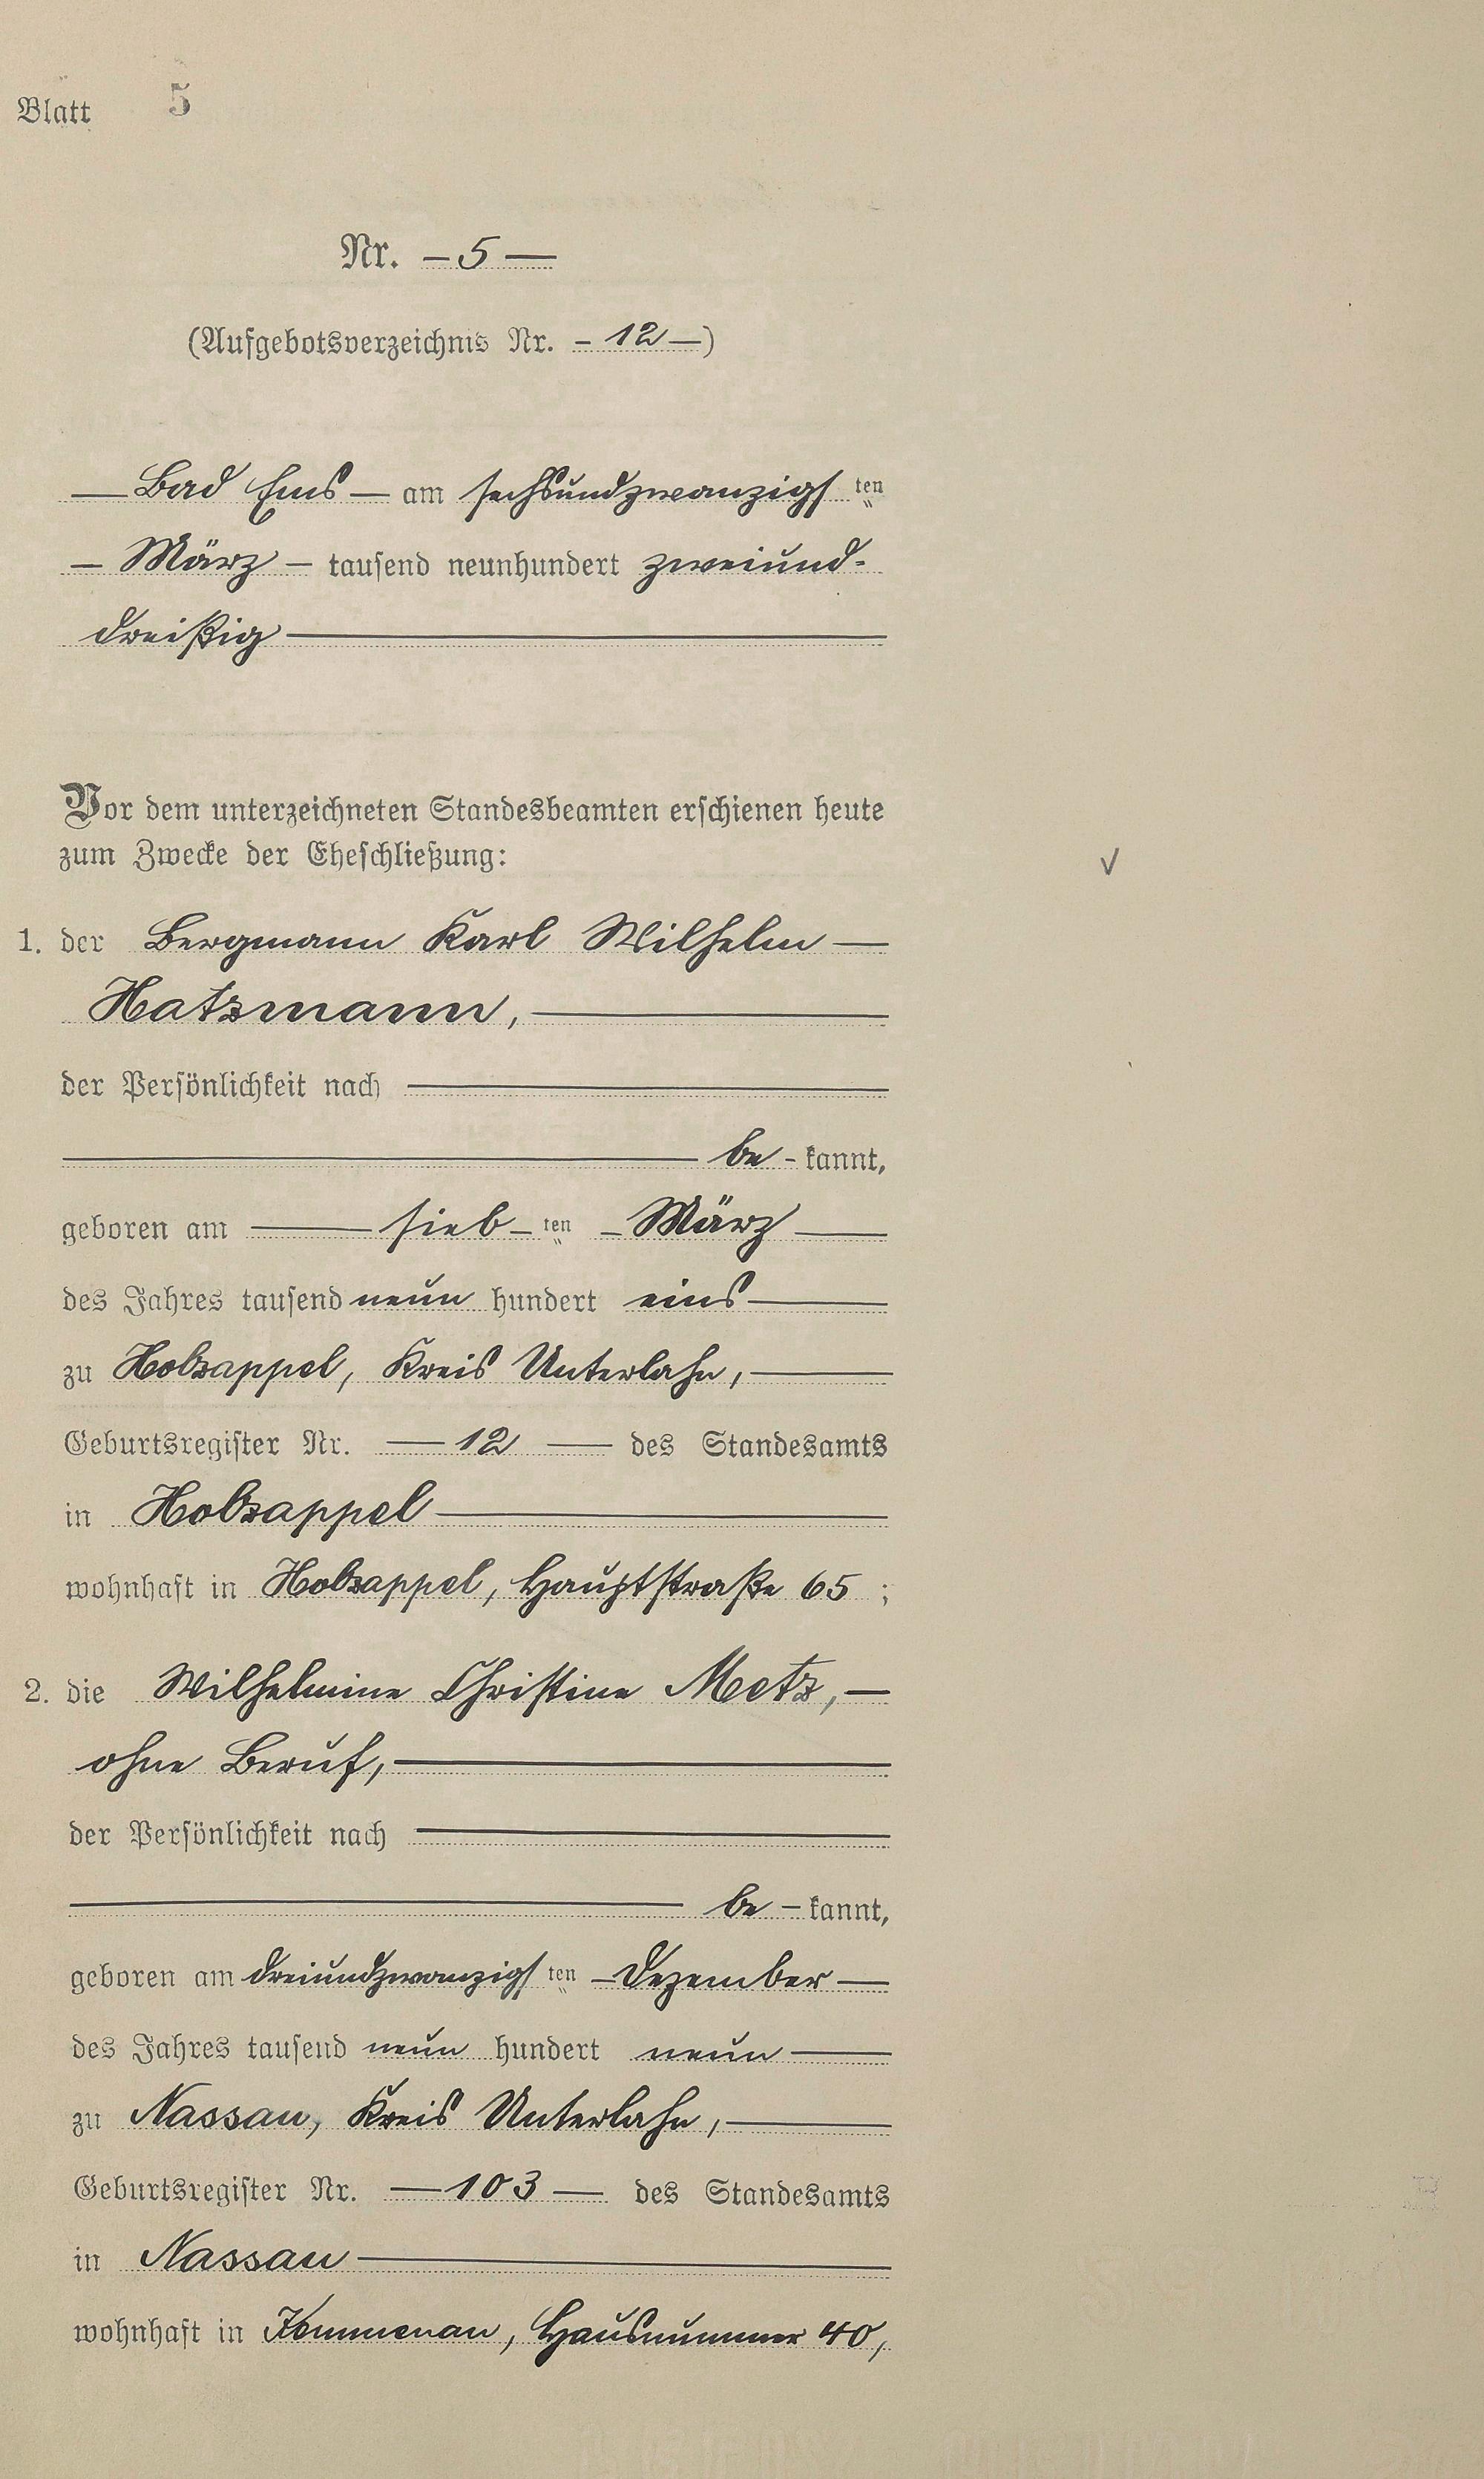 Blatt 5
Nr. – 5 —
(Aufgebotsverzeichnis Nr. – 12 —)
— Bad Ems — am sechsundzwanzigsten
– März – tausend neunhundert zweiund-
dreißig —
Vor dem unterzeichneten Standesbeamten erschienen heute
zum Zwecke der Eheschließung:
1. der Bergmann Karl Wilhelm —
Hatzmann, —
der Persönlichkeit nach —
— be - kannt,
geboren am — sieb – ten – März —
des Jahres tausend neun hundert eins —
zu Holzappel, Kreis Unterlahn, —
Geburtsregister Nr. — 12 — des Standesamts
in Holzappel —
wohnhaft in Holzappel, Hauptstraße 65 ;
2. die Wilhelmine Christine Metz, —
ohne Beruf, —
der Persönlichkeit nach —
— be – kannt,
geboren am dreiundzwanzigsten – Dezember —
des Jahres tausend neun hundert neun —
zu Nassau, Kreis Unterlahn, —
Geburtsregister Nr. — 103 — des Standesamts
in Nassau —
wohnhaft in Kemmenau, Hausnummer 40,